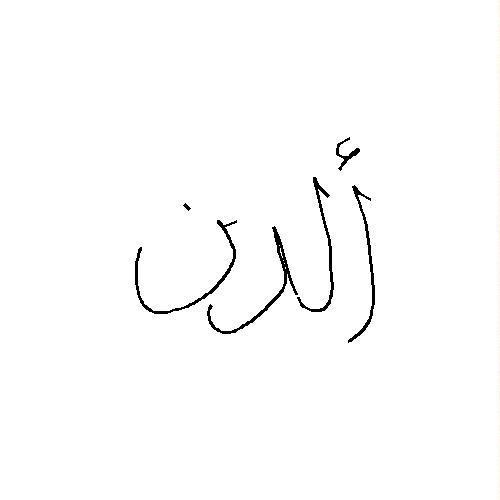 ألدن